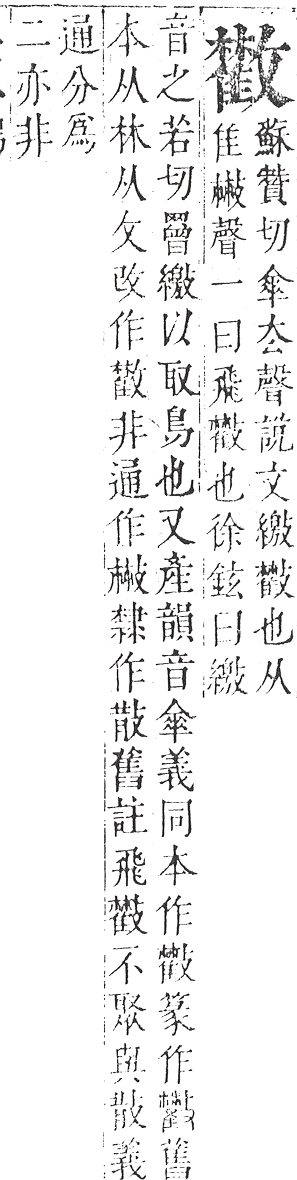 𢿱
蘇贊切傘去聲說文繳𢿱也从
隹㪔聲一曰飛𢿱也徐鉉曰繳
音之若切罾繳以取鳥也又產韻音傘義同本作𢿱篆作𢿱舊
本从林从攵改作𢿱非通作㪔隸作散舊註飛𢿱不聚與散義
通分爲
二亦非